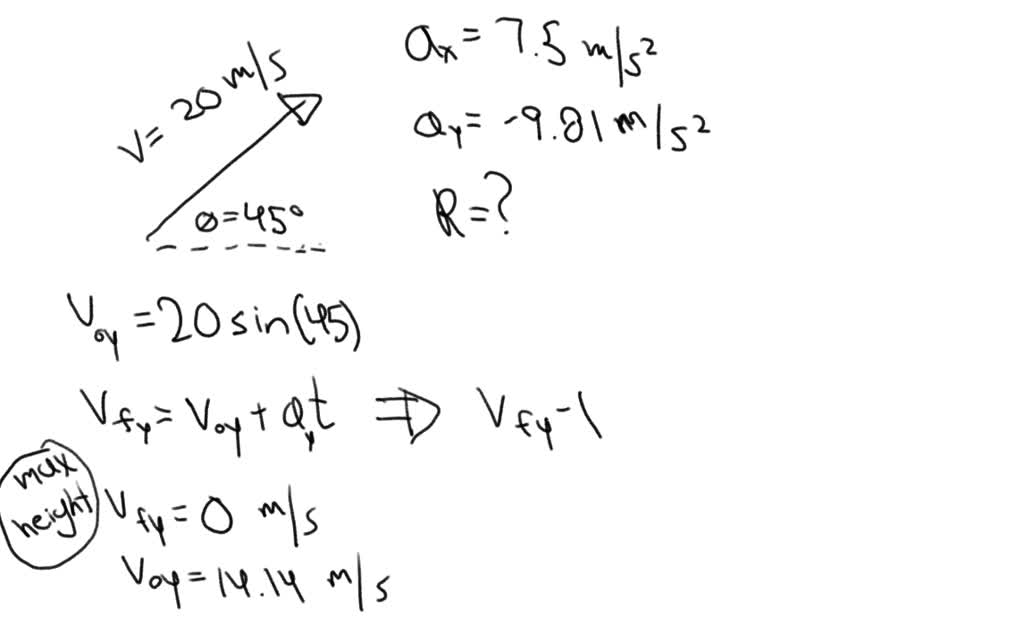 V= 20 m/s
θ=45°
ax= 7.5 m/s²
ay= -9.81 m/s²
R=?
Voy =20 sin(45)
Vfy= Voy + ayt ⇒ Vfy-
max height
Vfy=0 m/s
Voy=14.14 m/s